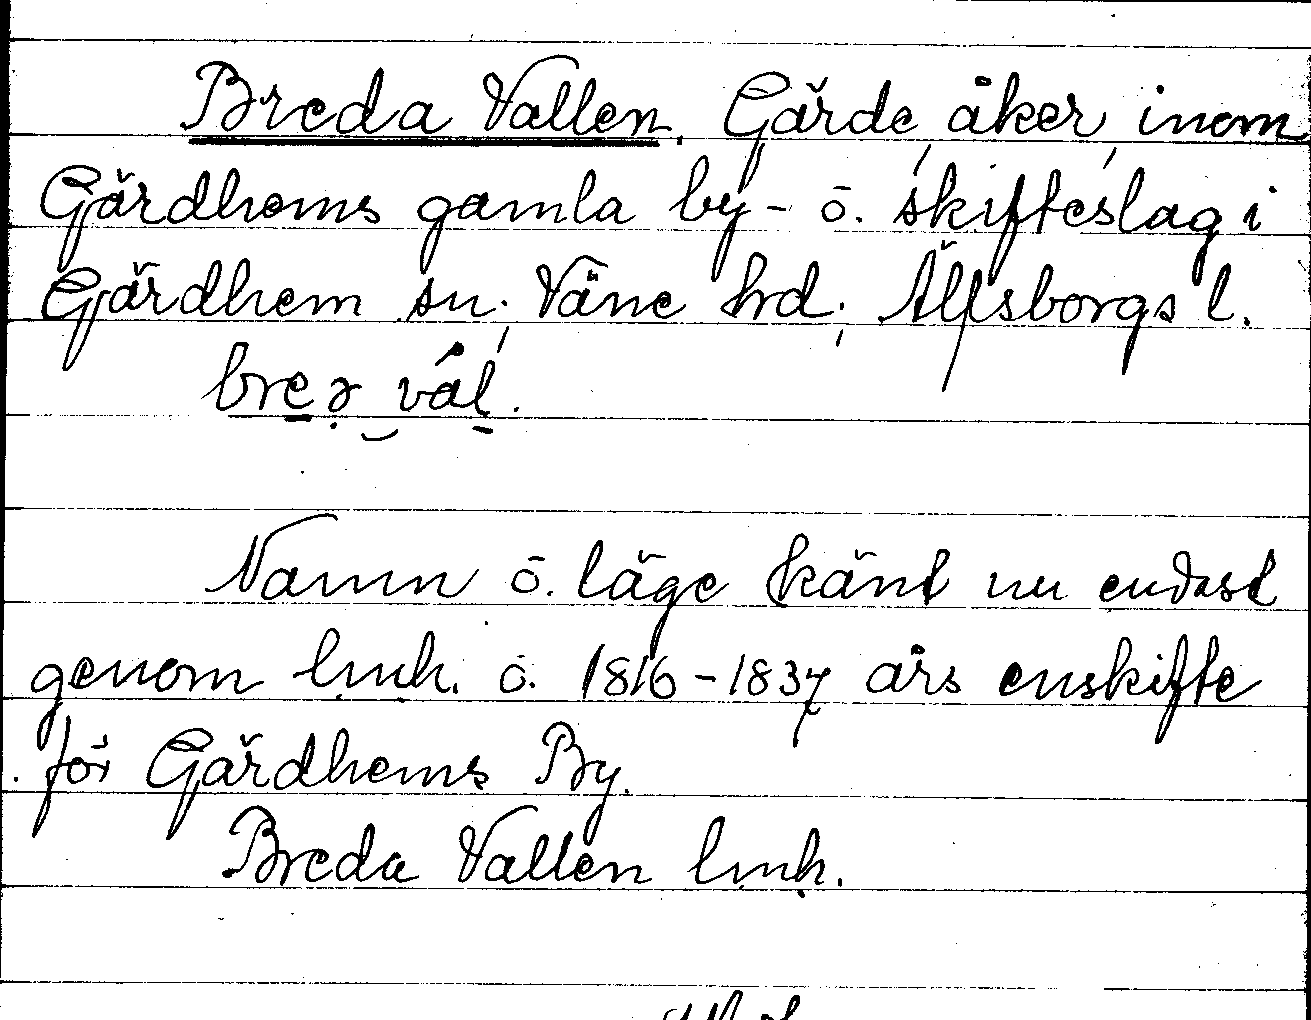 Breda Vallen. Gärde åker inom
Gärdhems gamla by- o. skifteslag i
Gärdhem sn; Väne hrd; Älfsborgs l.
bre ə vál.
Namn o. läge känt nu endast
genom lmh. o. 1816-1837 års enskifte
för Gärdhems By.
Breda Vallen lmh.